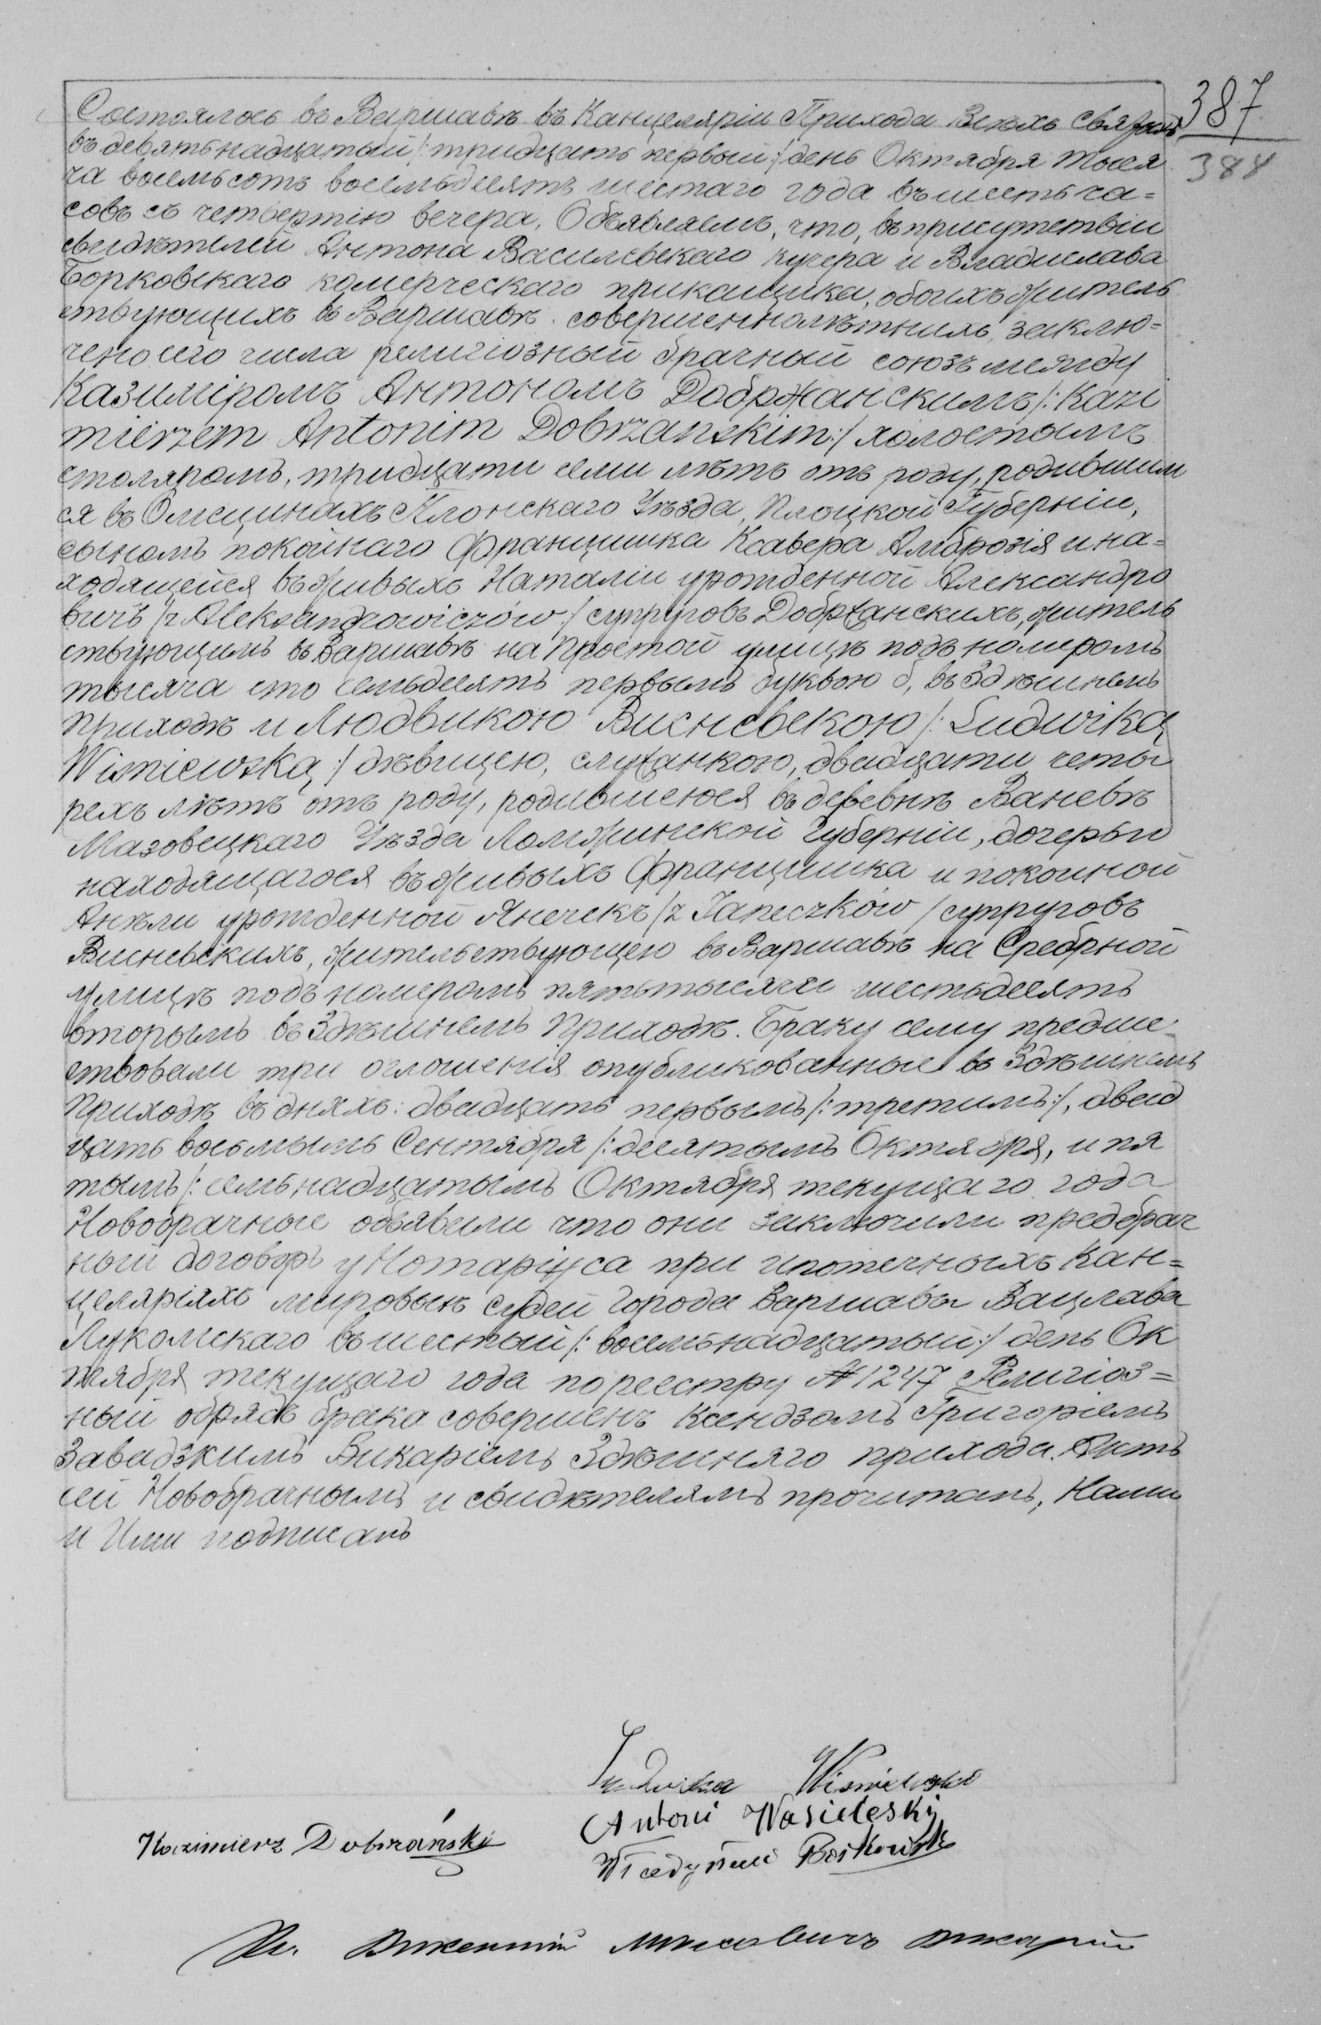 387
388
Состоялось въ Варшавѣ въ Канцеляріи Прихода Всѣхъ Святыхъ
въ девятьнадцатый /: тридцать первый :/ день Октября тыся
ча восемьсотъ восемьдесятъ шестаго года въ шесть ча=
совъ съ четвертію вечера. Объявляемъ, что, въ присутствіи
свидѣтелей Антона Василевскаго кучера и Владислава
Борковскаго комерческаго прикащика, обоихъ житель
ствующихъ въ Варшавѣ совершеннолѣтнихъ, заклю=
чено сего числа религіозный брачный союзъ между
Казиміромъ Антономъ Добржанскимъ /: Kazi
mierzem Antonim Dobrzanskim :/ холостымъ
столяромъ, тридцати семи лѣтъ отъ роду, родившим
ся въ Омецинахъ Плонскаго Уѣзда, Плоцкой Губерніи,
сыномъ покойнаго Францишка Ксавера Амброзія и на=
ходящейся въ живыхъ Наталіи урожденной Александро
вичъ /z Aleksandrowiczów :/ супруговъ Добржанскихъ, житель
ствующимъ въ Варшавѣ на Простой улицѣ подъ номеромъ
тысяча сто семьдесятъ первымъ буквою б, въ Здѣшнемъ
Приходѣ и Людвикою Висневскою /: Ludwiką
Wisniewską :/ дѣвицею, служанкою, двадцати четы
рехъ лѣтъ отъ роду, родившеюся въ деревнѣ Ваневѣ
Мазовецкаго Уѣзда Ломжинской Губерніи, дочерью
находящагося въ живыхъ Францишка и покойной
Анѣли урожденной Янечекъ /z Janeczków / супруговъ
Висневскихъ, жительствующею въ Варшавѣ на Сребрной
улицѣ подъ номеромъ пять тысячи шестьдесятъ
вторымъ въ Здѣшнемъ Приходѣ. Браку сему предше=
ствовали три оглошенія опубликованные въ Здѣшнемъ
Приходѣ въ дняхъ: двадцать первымъ /: третимъ :/, двад
цать восьмымъ Сентября /: десятымъ Октября, и пя
тымъ /: семьнадцатымъ Октября текущаго года
Новобрачные объявили что они заключили предбрач
ный договоръ у Нотаріуса при ипотечныхъ Кан=
целяріяхъ мировыхъ судей города Варшавы Вацлава
Лукомскаго въ шестый /: восемьнадцатый :/ день Ок
тября текущаго года по реестру № 1247 Религіоз=
ный обрядъ брака совершенъ Ксендзомъ Григоріемъ
Завадзкимъ Викаріемъ Здѣшняго прихода. Актъ
сей Новобрачнымъ и свидѣтелямъ прочитанъ, Нами
и Ими подписанъ
Ludwika Wisniewska
Antoni Wasileski
Kazimierz Dobrzánski
Borkowski
Викентій викарій